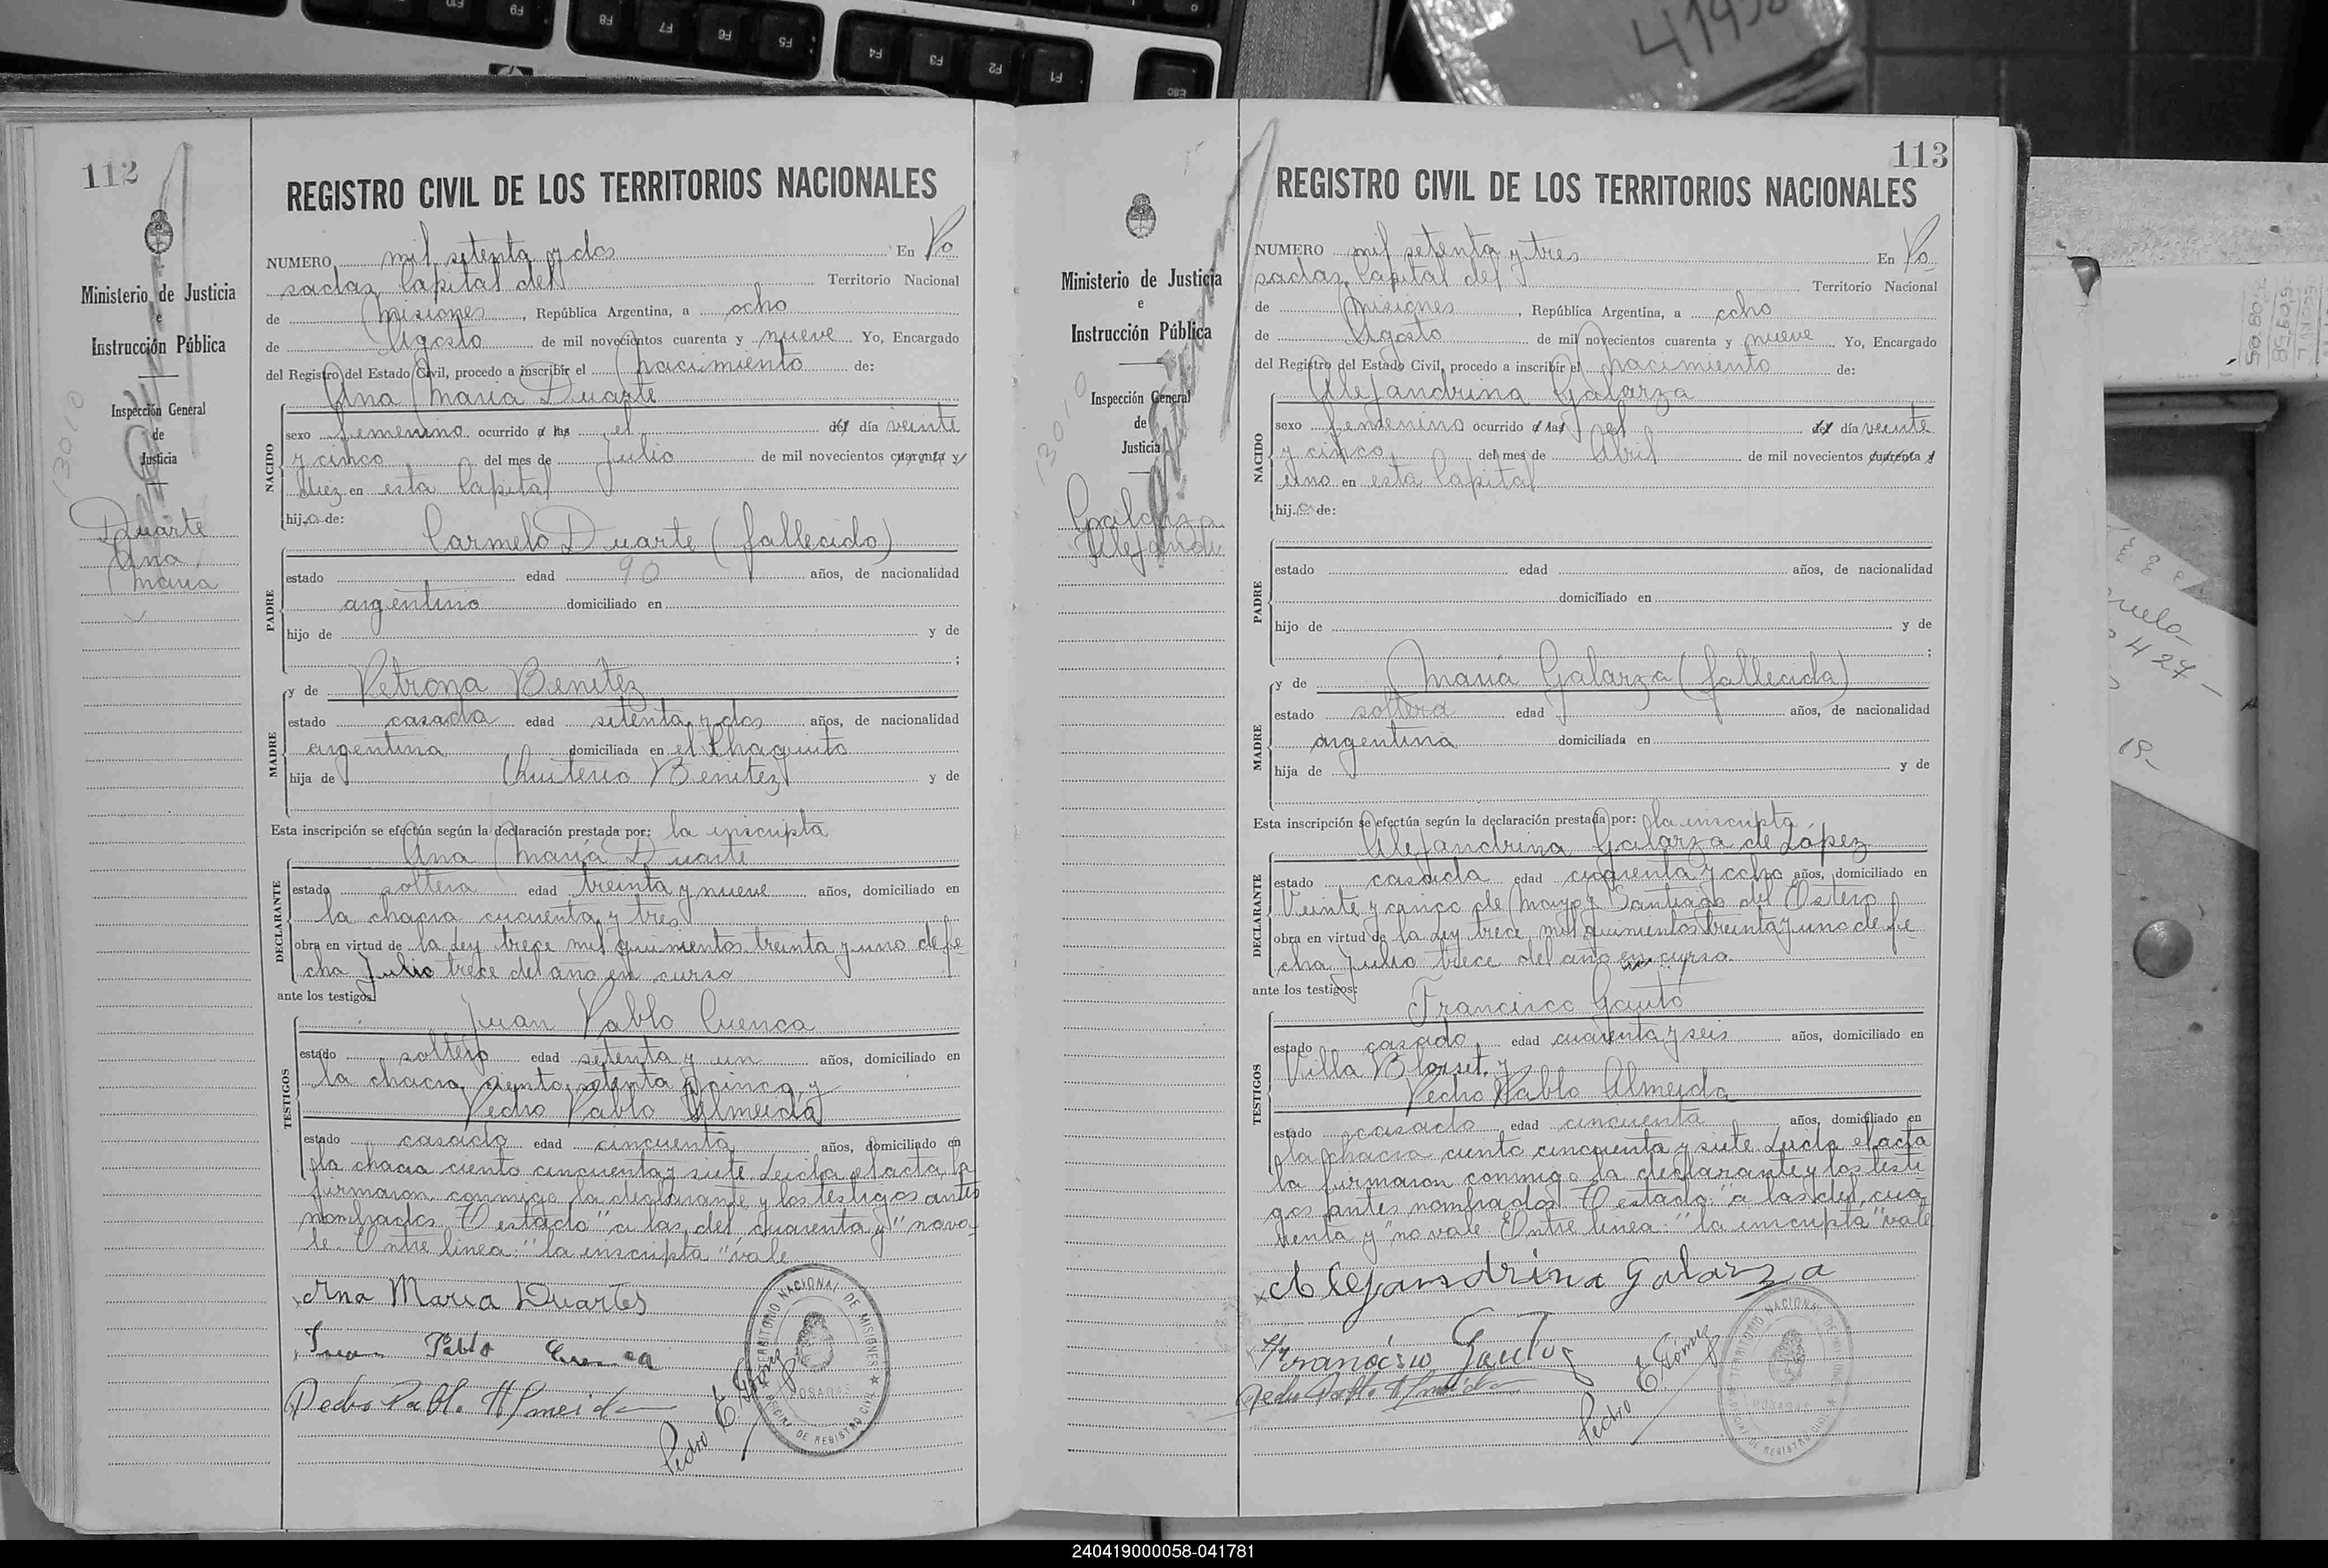 F10 F9 F8 F7 F6 F5 F4 F3 F2 F1 Esc
112
Ministerio de Justicia
e
Instrucción Pública
Inspección General
de
Justicia
13010
Duarte
Ana
Maria
REGISTRO CIVIL DE LOS TERRITORIOS NACIONALES
NUMERO mil setenta y dos En Po
sadas, Capital del Territorio Nacional
de Misiones, República Argentina, a ocho
de Agosto de mil novecientos cuarenta y nueve Yo, Encargado
del Registro del Estado Civil, procedo a inscribir el nacimiento de:
Ana Maria Duarte
NACIDO
sexo femenino ocurrido a las el del día veinte
y cinco del mes de Julio de mil novecientos cuarenta y
diez en esta Capital
hija de:
Carmelo Duarte (fallecido)
PADRE
estado edad 90 años, de nacionalidad
argentino domiciliado en
hijo de y de
;
y de Petrona Benítez
MADRE
estado casada edad setenta y dos años, de nacionalidad
argentina domiciliada en el Chaquito
hija de Quiterio Benitez y de
Esta inscripción se efectúa según la declaración prestada por: la inscripta
Ana María Duarte
DECLARANTE
estado soltera edad treinta y nueve años, domiciliado en
la chacra cincuenta y tres
obra en virtud de la Ley trece mil quinientos treinta y uno de fe
cha Julio trece del año en curso
ante los testigos:
Juan Pablo Cuenca
TESTIGOS
estado soltero edad setenta y un años, domiciliado en
la chacra ciento setenta y cinco, y
Pedro Pablo Almeida
estado casado edad cincuenta años, domiciliado en
la chacra ciento cincuenta y siete. Leida el acta, la
firmaron conmigo la declarante y los testigos antes
nombrados. Testado "a las del cuarenta y" no va
le. Entre linea: "la inscripta" vale
Ana Maria Duartes
Juan Pablo Cuenca
Pedro Pablo Almeida
Pedro E. Gómez
TERRITORIO NACIONAL DE MISIONES
POSADAS
OFICINA DE REGISTRO CIVIL
113
Ministerio de Justicia
e
Instrucción Pública
Inspección General
de
Justicia
13010
Galarza
Alejandr
REGISTRO CIVIL DE LOS TERRITORIOS NACIONALES
NUMERO mil setenta y tres En Po
sadas, Capital del Territorio Nacional
de Misiones, República Argentina, a ocho
de Agosto de mil novecientos cuarenta y nueve Yo, Encargado
del Registro del Estado Civil, procedo a inscribir el nacimiento de:
Alejandrina Galarza
NACIDO
sexo femenino ocurrido a las el del día veinte
y cinco del mes de Abril de mil novecientos cuarenta y
uno en esta Capital
hija de:
PADRE
estado edad años, de nacionalidad
domiciliado en
hijo de y de
;
y de María Galarza (fallecida)
MADRE
estado soltera edad años, de nacionalidad
argentina domiciliada en
hija de y de
Esta inscripción se efectúa según la declaración prestada por: la inscripta
Alejandrina Galarza de López
DECLARANTE
estado casada edad cuarenta y ocho años, domiciliado en
Veinte y cinco de Mayo y Santiago del Estero
obra en virtud de la Ley trece mil quinientos treinta y uno de fe
cha Julio trece del año en curso
ante los testigos:
Francisco Gauto
TESTIGOS
estado casado edad cuarenta y seis años, domiciliado en
Villa Blosset, y
Pedro Pablo Almeida
estado casado edad cincuenta años, domiciliado en
la chacra ciento cincuenta y siete. Leida el acta
la firmaron conmigo la declarante y los testi
gos antes nombrados. Testado: "a las del cua
renta y" no vale. Entre linea: "la inscripta" vale
Alejandrina Galarza
Francisco Gauto
Pedro Pablo Almeida
Pedro E. Gómez
TERRITORIO NACIONAL DE MISIONES
POSADAS
OFICINA DE REGISTRO CIVIL
240419000058-041781